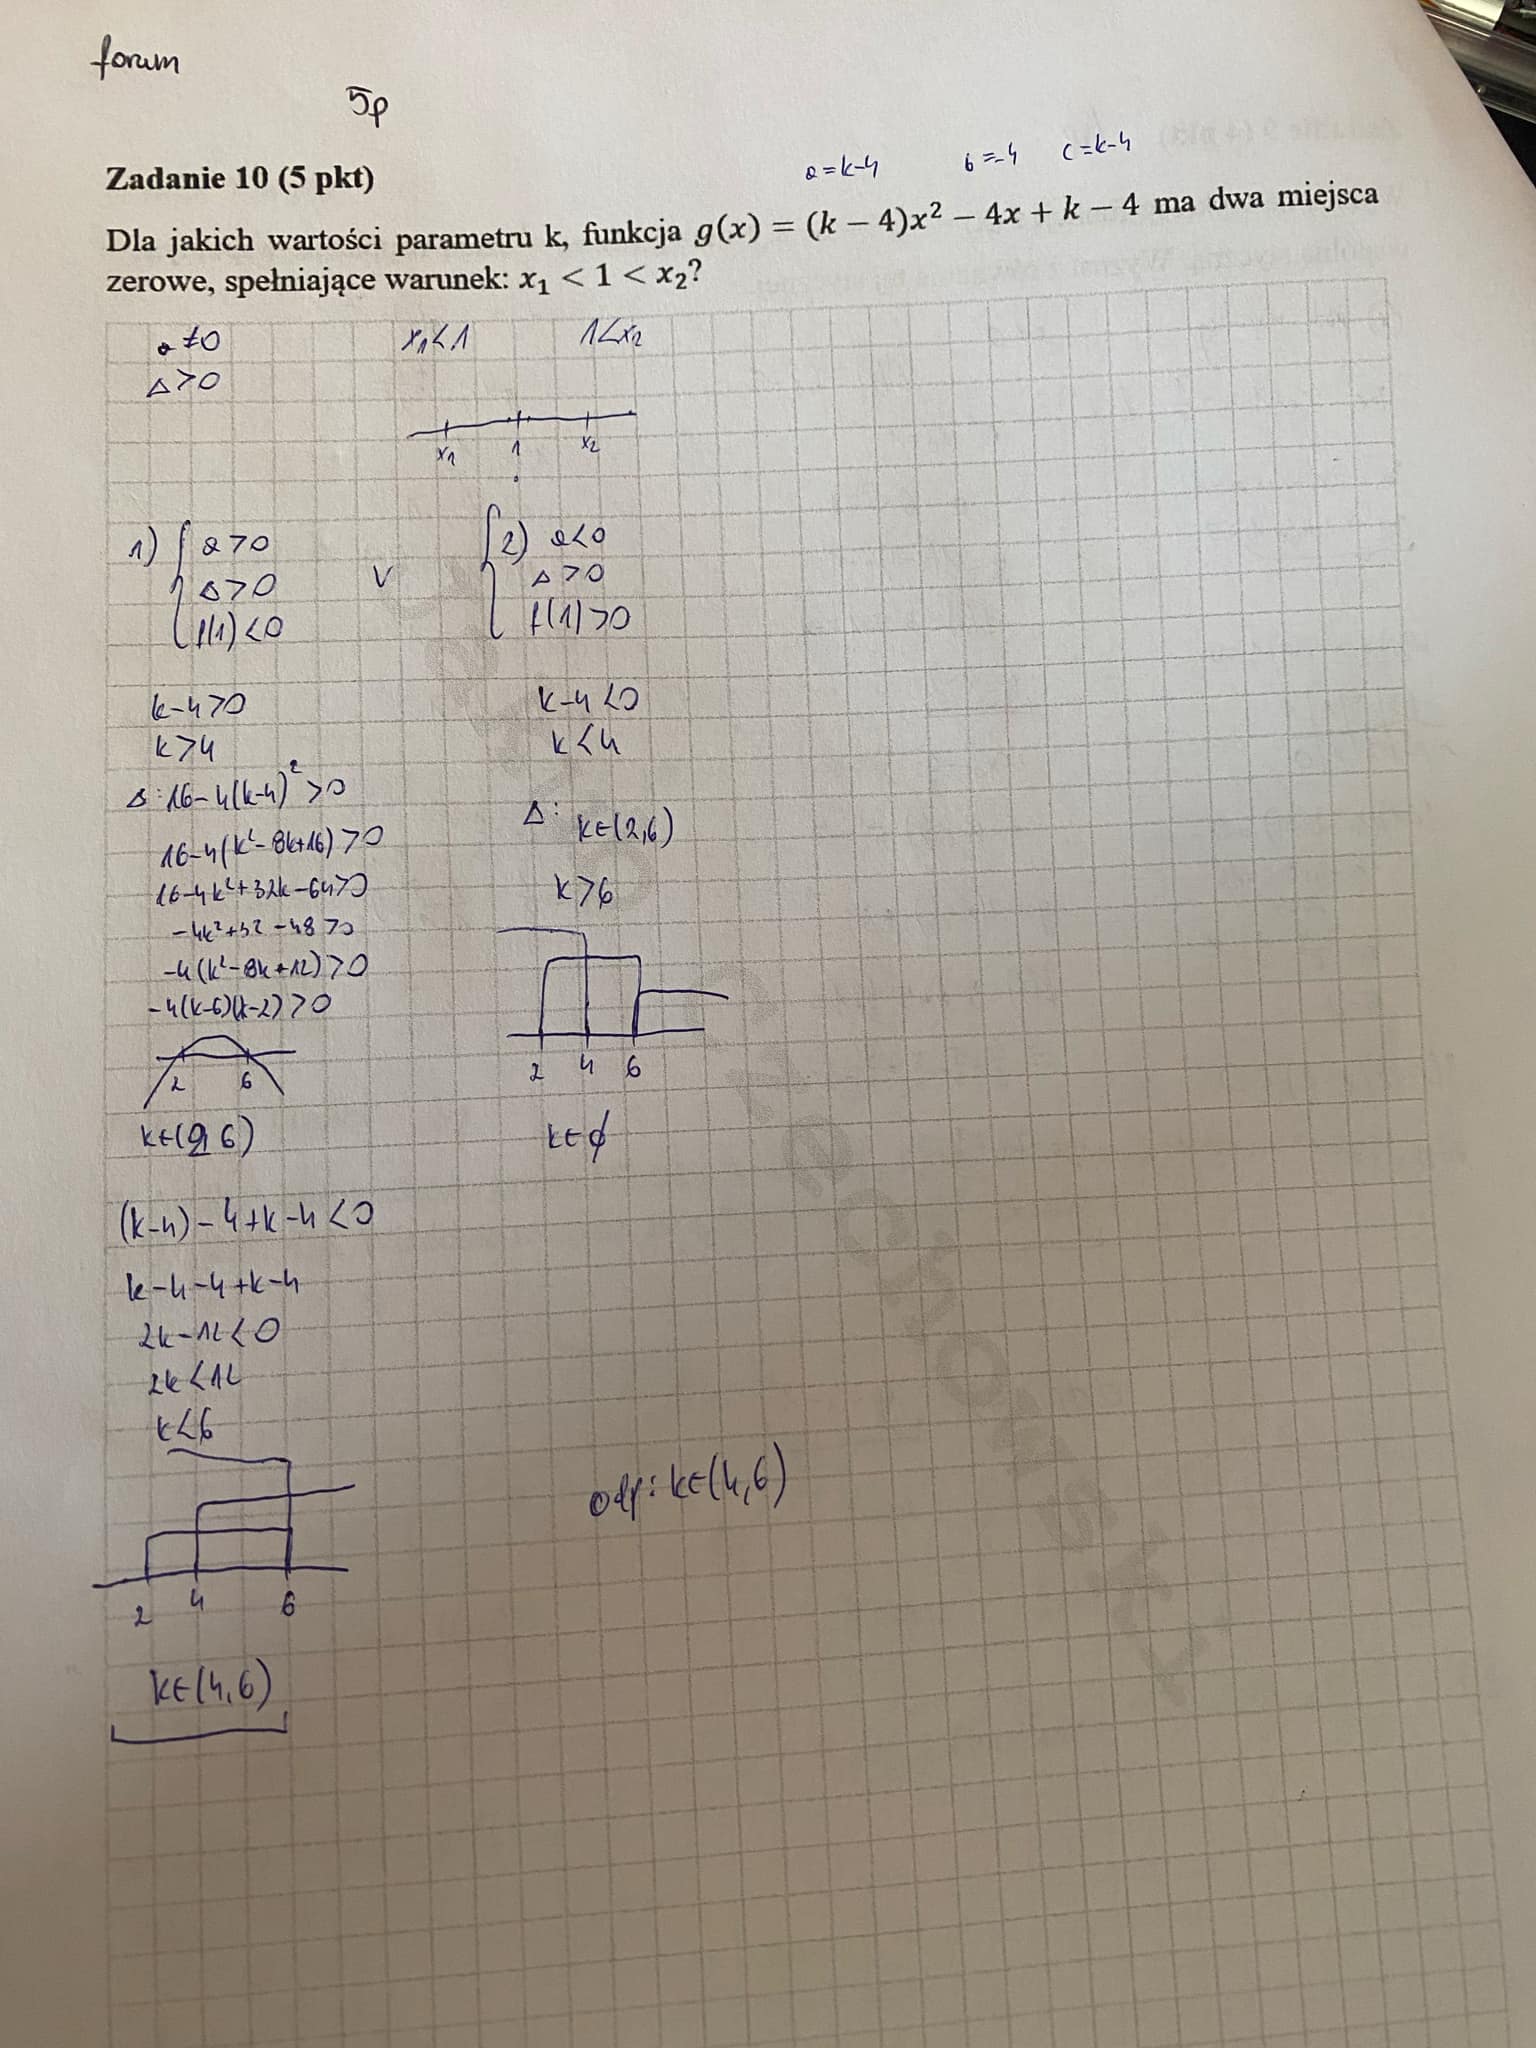 forum
5p
a=k-4 b=-4 c=k-4
Zadanie 10 (5 pkt)
Dla jakich wartości parametru k, funkcja g(x) = (k − 4)x² − 4x + k − 4 ma dwa miejsca
zerowe, spełniające warunek: x₁ < 1 < x₂?
a≠0 x₁<1 1<x₂
Δ>0
x₁ 1 x₂
1) a>0
Δ>0
f(1)<0
V
2) a<0
Δ>0
f(1)>0
k-4>0
k>4
Δ: 16-4(k-4)²>0
16-4(k²-8k+16)>0
16-4k²+32k-64>0
-4k²+32-48>0
-4(k²-8k+12)>0
-4(k-6)(k-2)>0
2 6
k∈(2,6)
(k-4)-4+k-4<0
k-4-4+k-4
2k-12<0
2k<12
k<6
2 4 6
k∈(4,6)
k-4<0
k<4
Δ: k∈(2,6)
k>6
2 4 6
k∈∅
odp: k∈(4,6)